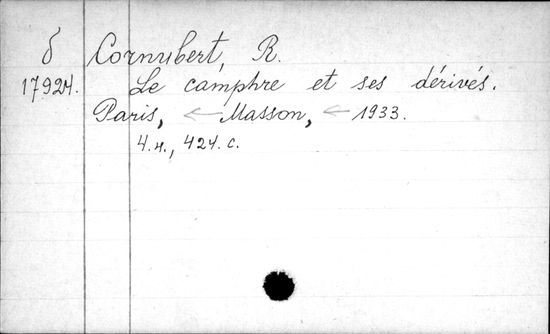 б Cornubert, R.
17924. Le camphre et ses dérivés.
Paris, ← Masson, ← 1933.
4.н., 424. с.